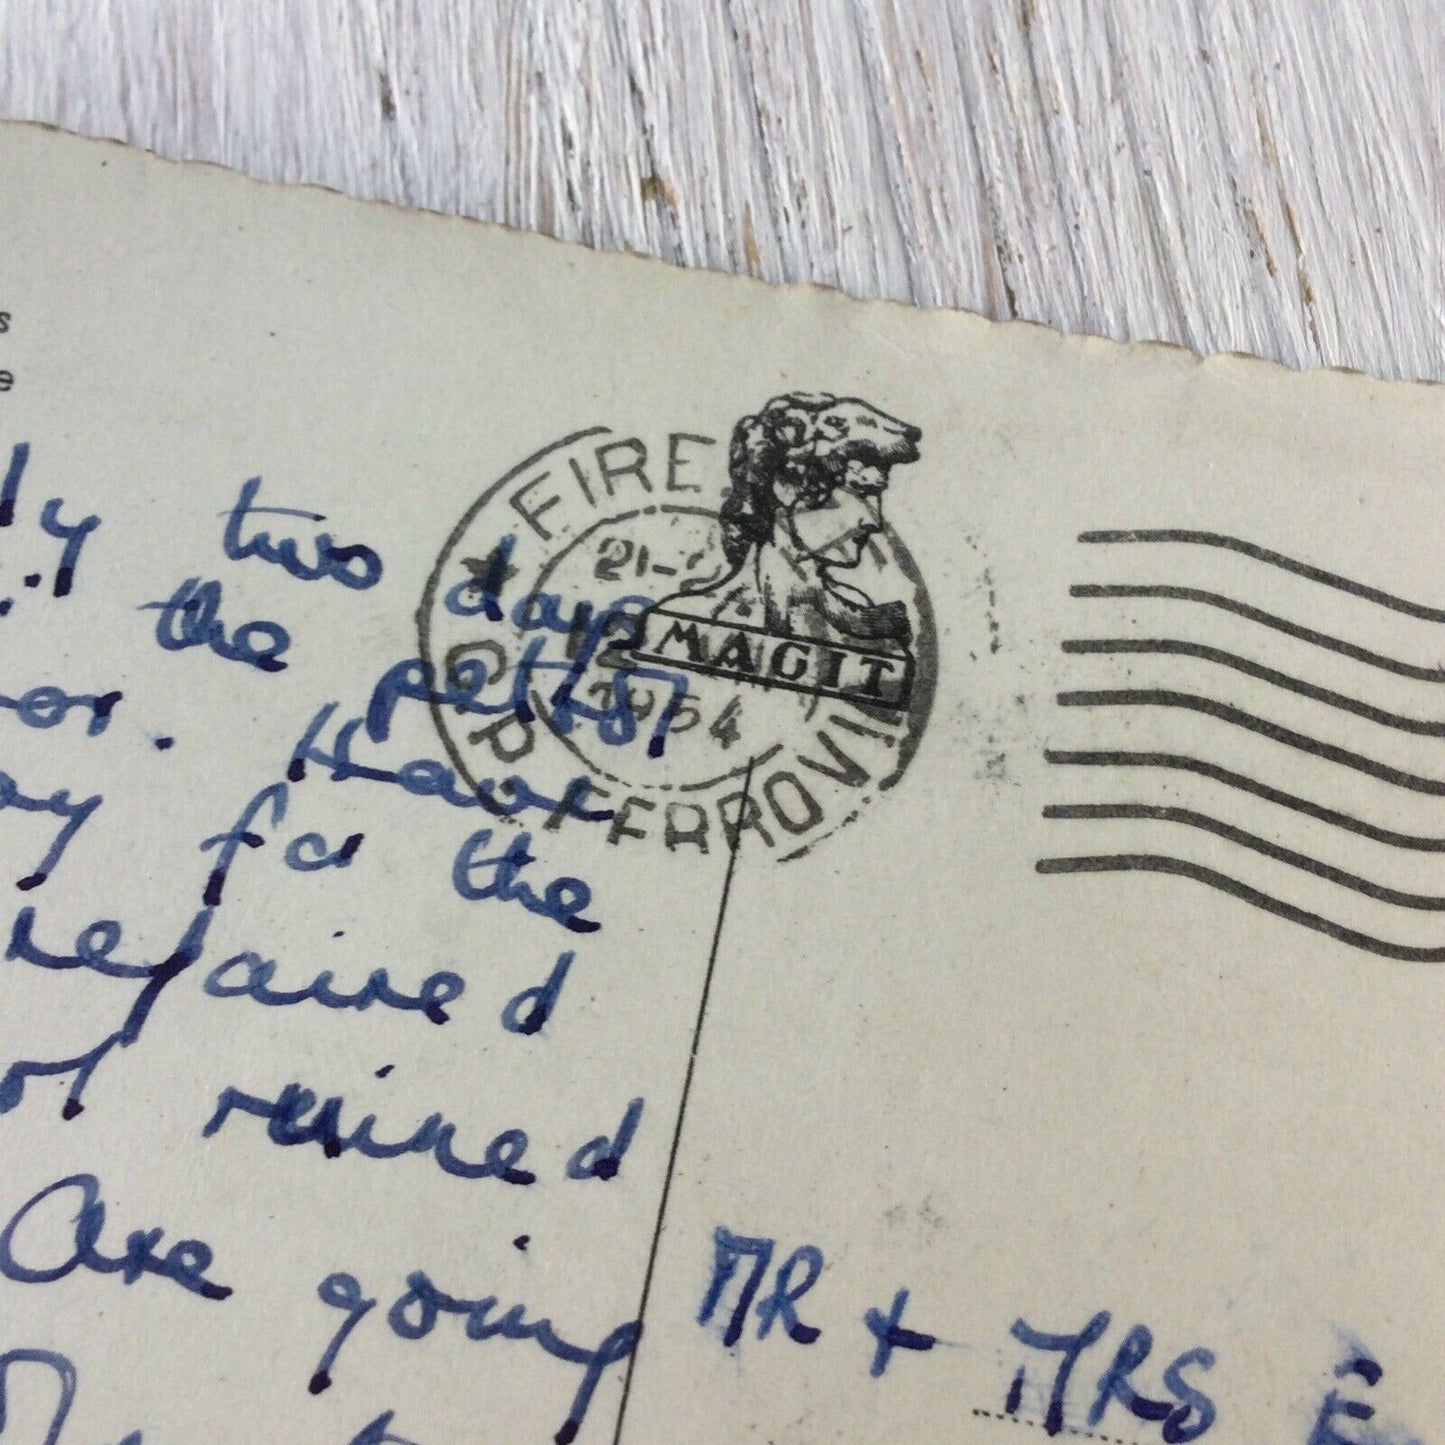 s
e
ly two days
the petrol
or. Have
ay for the
repaired
ruined
Are going
FIRE
21-2
12
1954
FERROVI
MAGIT
MR + MRS E